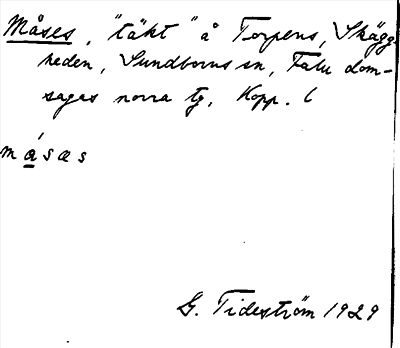 Måses, "täkt" å Torpens, Skägg-
heden, Sundborns sn, Falu dom-
sagas norra tg, Kopp. l
måsas
G. Tideström 1929